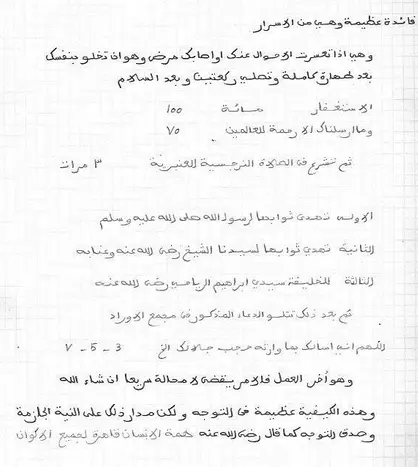 فائدة عظيمة وهي من الاسرار
وهي اذا تعسرت الاحوال عنك او اصابك مرض وهو ان تخلو بنفسك
بعد طهارة كاملة وتصلي ركعتين وبعد السلام
الاستغفار مائة 100
وما ارسلناك الا رحمة للعالمين 75
ثم تشرع في الصلاة النرجسية العنبرية 3 مرات
الاولى تهدي ثوابها لرسول الله صلى الله عليه وسلم
الثانية تهدي ثوابها لسيدنا الشيخ رضي الله عنه وعنا به
الثالثة للخليفة سيدي ابراهيم الرياحي رضي الله عنه
ثم بعد ذلك تتلو الدعاء المذكور في مجمع الاوراد
اللهم اني اسألك بما وارته حجب جلالك الخ 3 - 5 - 7
وهو آخر العمل فالامر يقضى لا محالة سريعا ان شاء الله
وهذه الكيفية عظيمة في التوجه ولكن مدار ذلك على النية الجازمة
وصدق التوجه كما قال رضي الله عنه همة الانسان قاهرة لجميع الاكوان